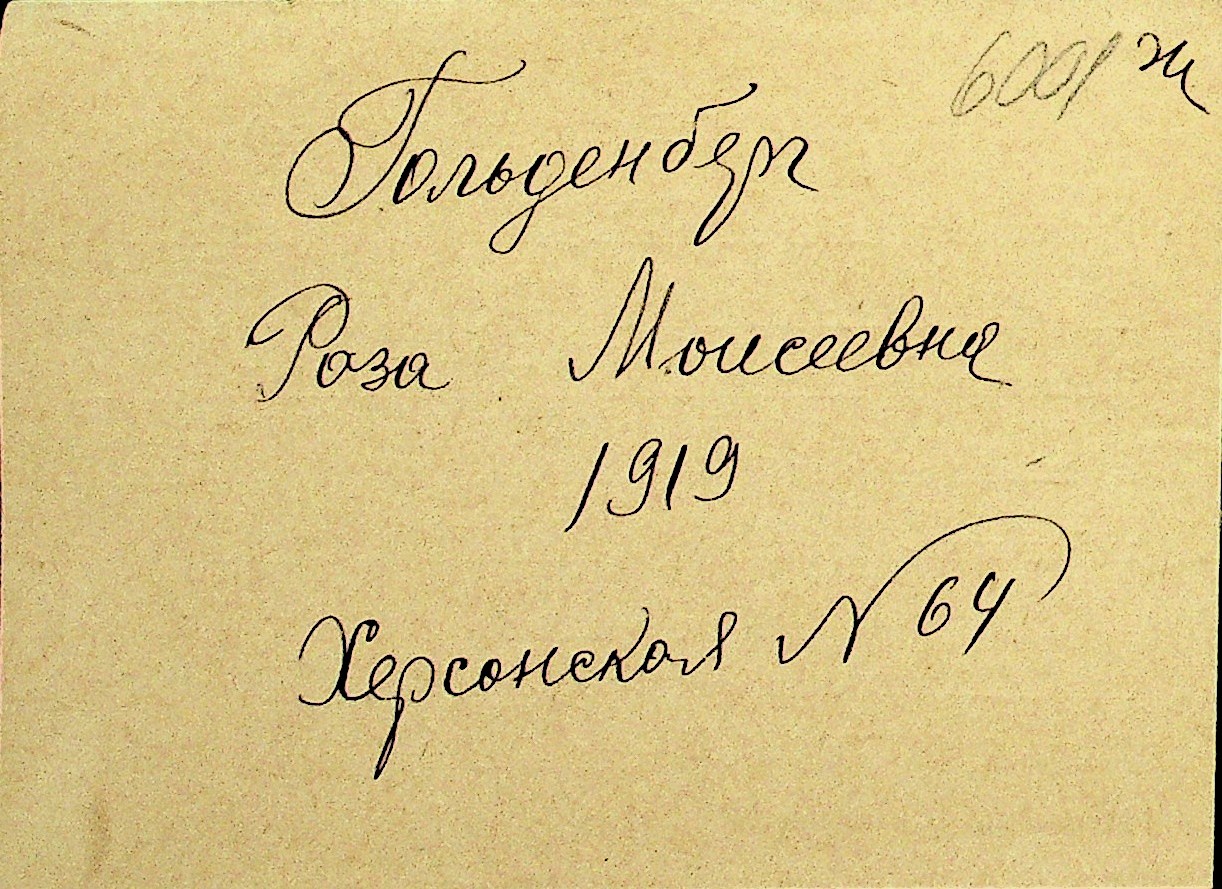 6001 ж
Гольденберг
Роза Моисеевна
1919
Херсонская N 64